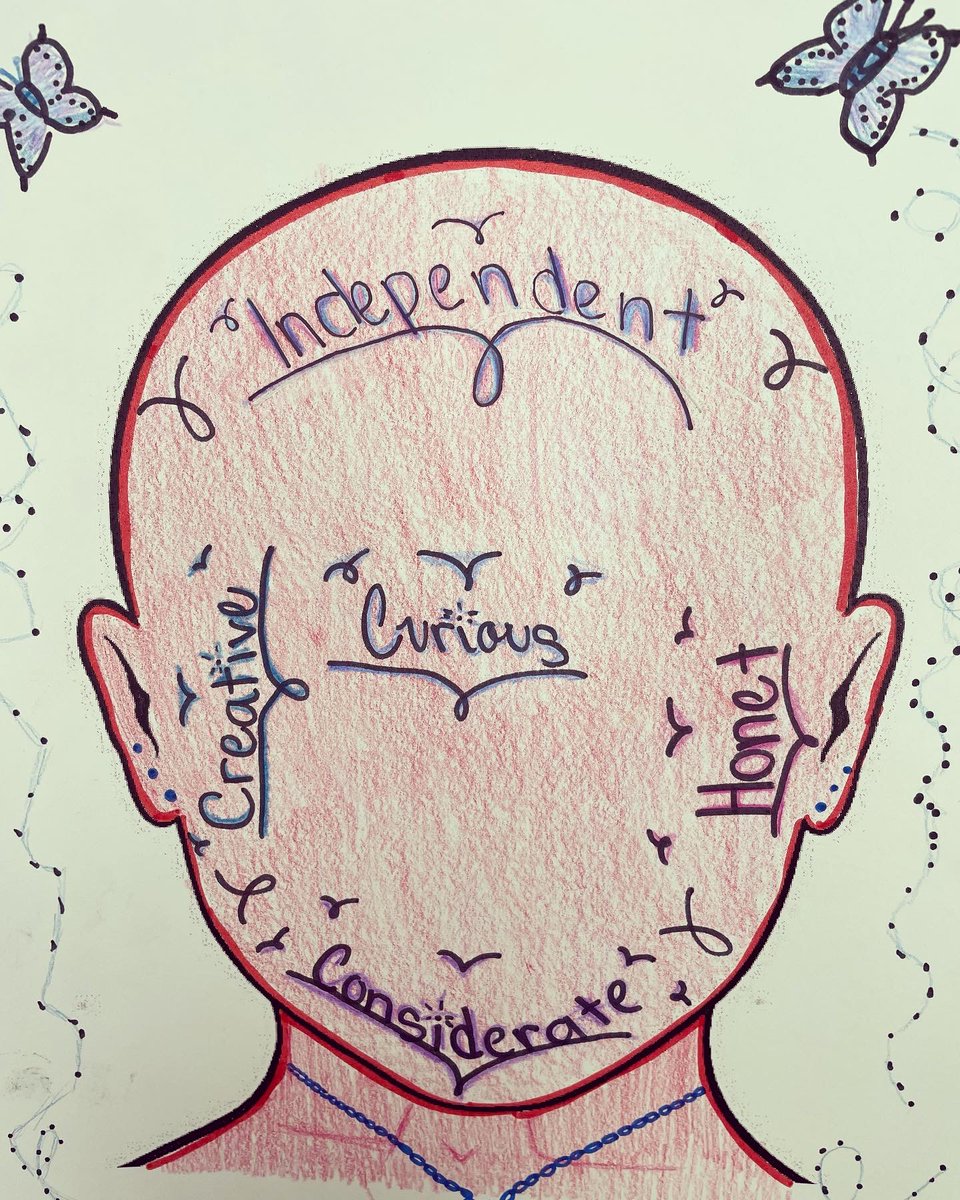 Independent
Creative
Curious
Honet
Considerate